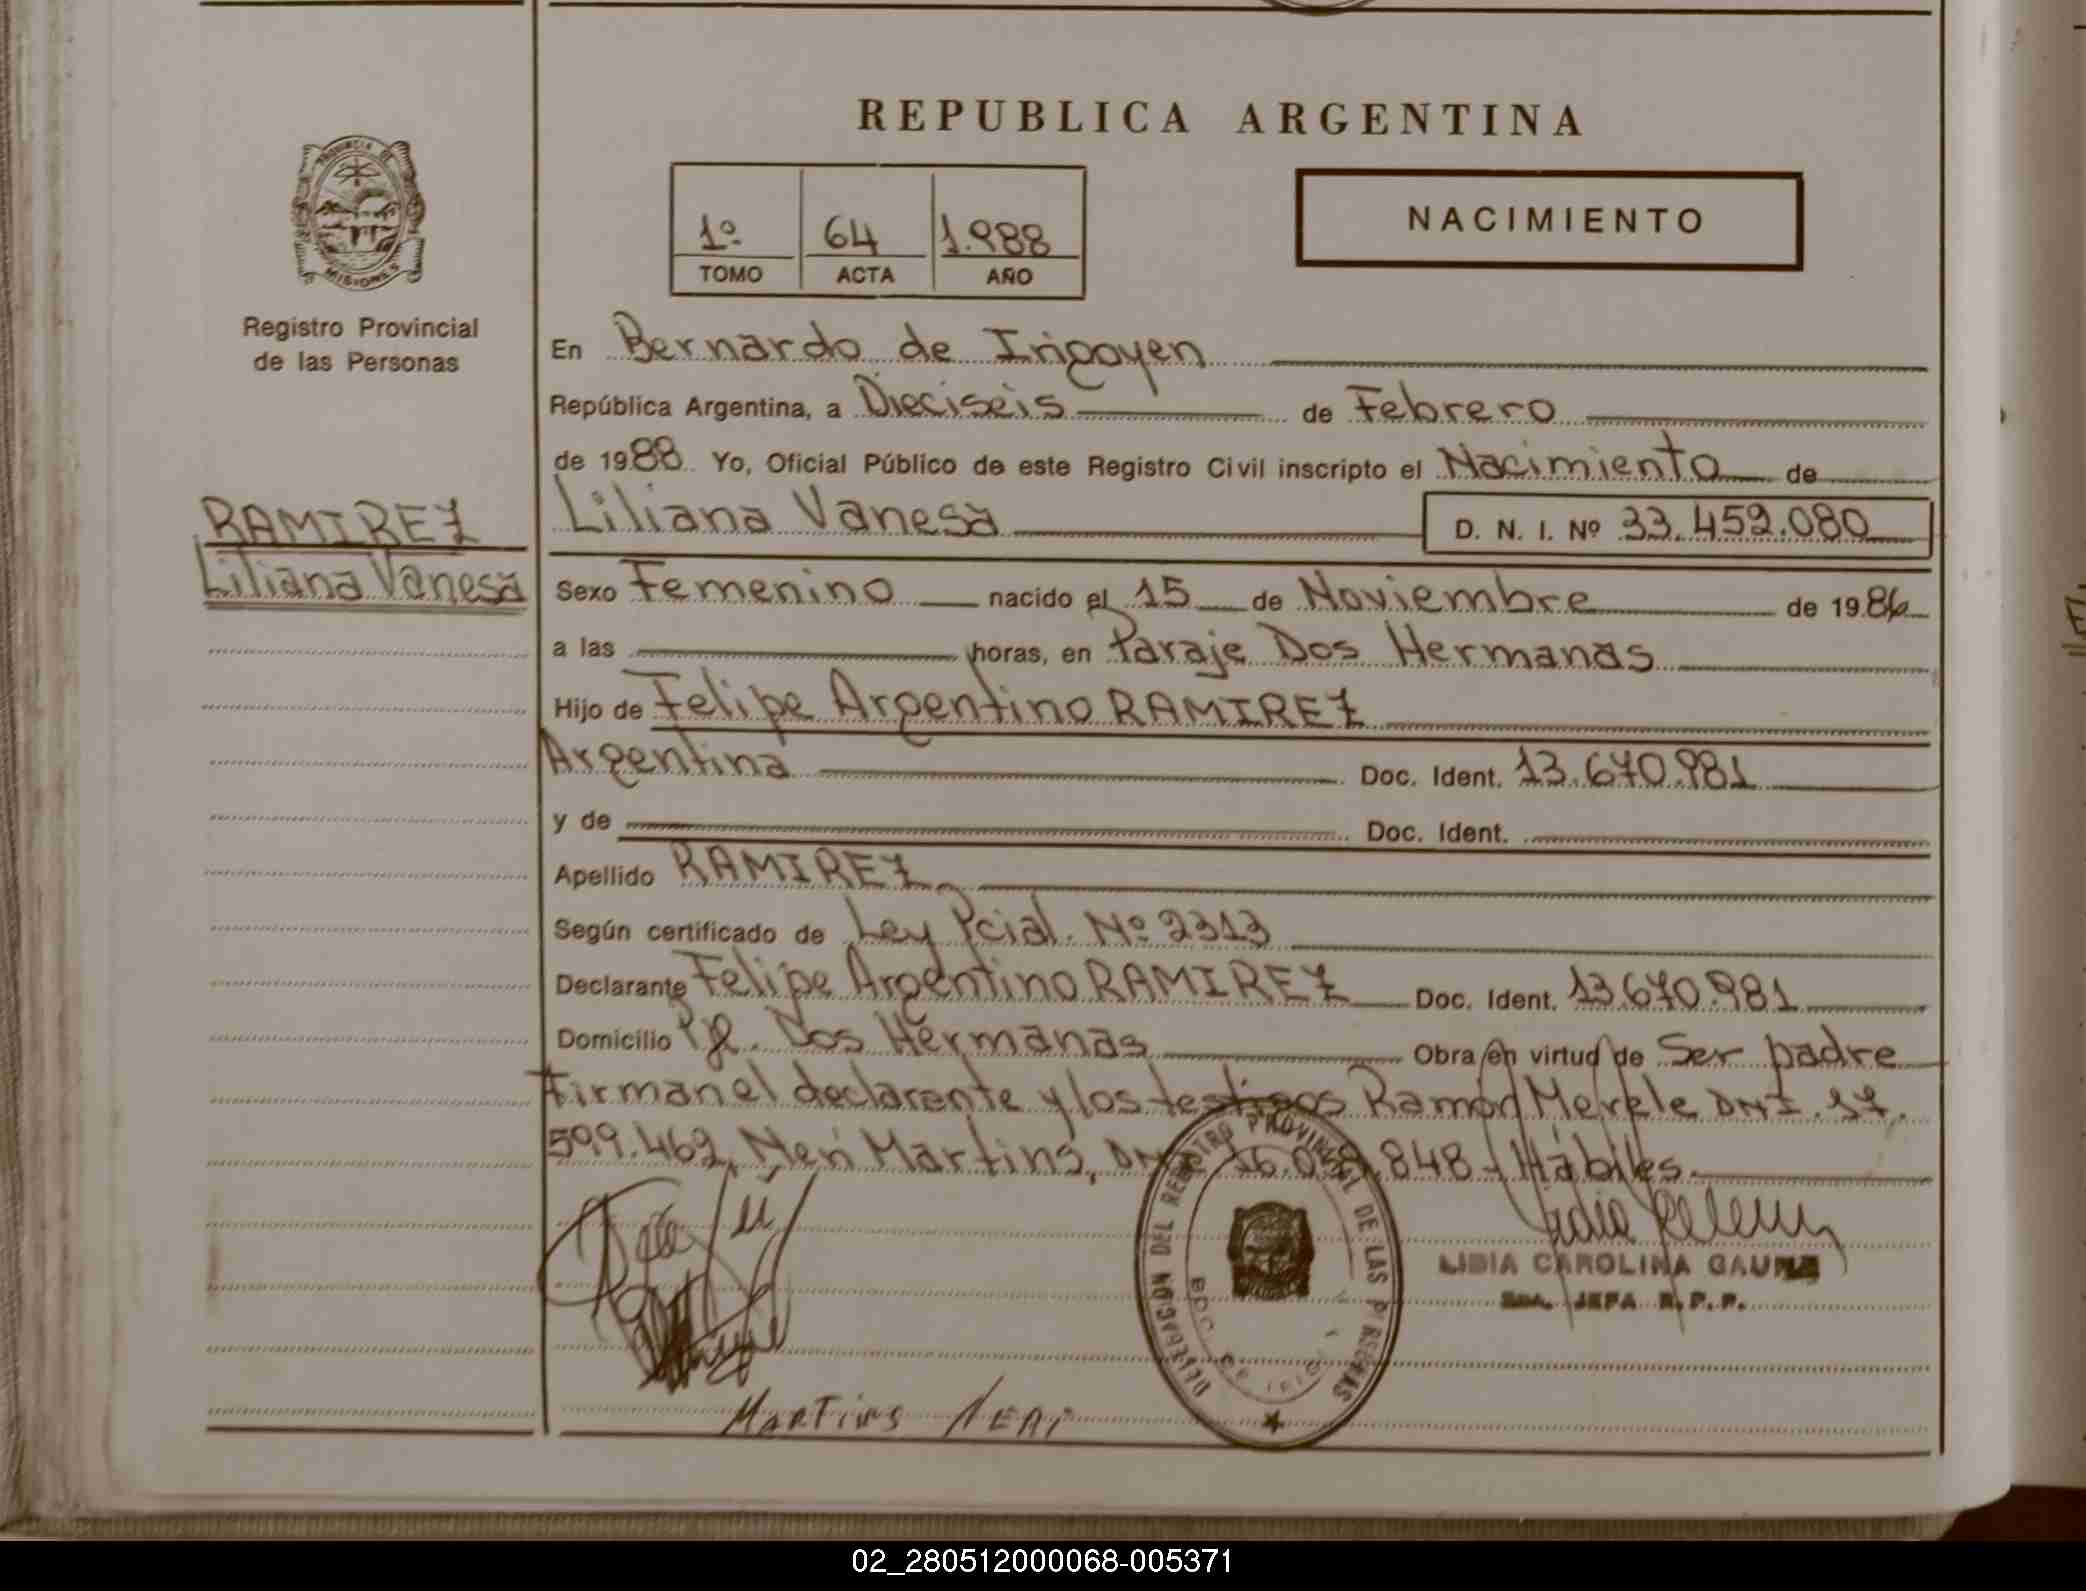 REPUBLICA ARGENTINA
PROVINCIA DE
MISIONES
Registro Provincial
de las Personas
1º 64 1.988
TOMO ACTA AÑO
NACIMIENTO
En Bernardo de Irigoyen
República Argentina, a Dieciseis de Febrero
de 1988 Yo, Oficial Público de este Registro Civil inscripto el Nacimiento de
RAMIREZ
Liliana Vanesa
Liliana Vanesa D. N. I. Nº 33.452.080
Sexo Femenino nacido el 15 de Noviembre de 1986
a las horas, en Paraje Dos Hermanas
Hijo de Felipe Argentino RAMIREZ
Argentina Doc. Ident. 13.670.981
y de Doc. Ident.
Apellido RAMIREZ
Según certificado de Ley Pcial. Nº 2313
Declarante Felipe Argentino RAMIREZ Doc. Ident. 13.670.981
Domicilio Pje. Dos Hermanas Obra en virtud de Ser padre
Firman el declarante y los testigos Ramón DNI. 17.
599.462, Neri Martins, 848 - Hábiles.
DELEGACION DEL REGISTRO PROVINCIAL DE LAS PERSONAS
LIDIA CAROLINA
JEFA R.P.P.
Martins Neri
02_280512000068-005371